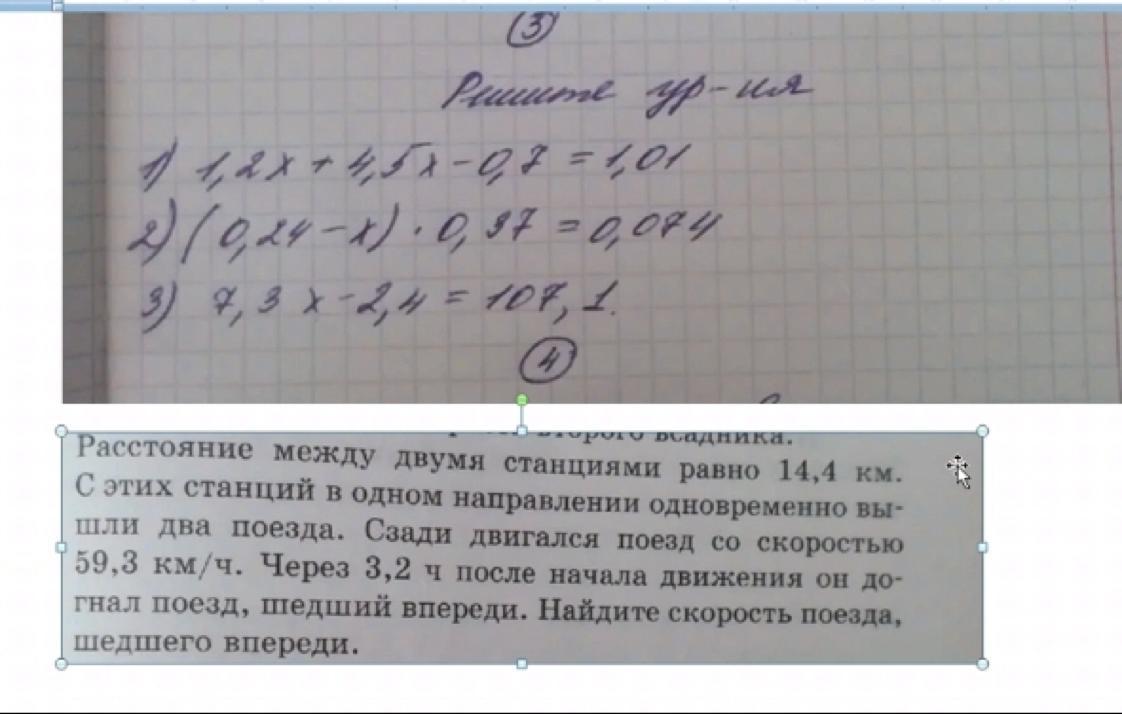 3
Решите ур-ия
1) 1,2x + 4,5x - 0,7 = 1,01
2) (0,24 - x) · 0,37 = 0,074
3) 7,3 x - 2,4 = 107,1.
4
второго всадника.
Расстояние между двумя станциями равно 14,4 км.
С этих станций в одном направлении одновременно вы-
шли два поезда. Сзади двигался поезд со скоростью
59,3 км/ч. Через 3,2 ч после начала движения он до-
гнал поезд, шедший впереди. Найдите скорость поезда,
шедшего впереди.